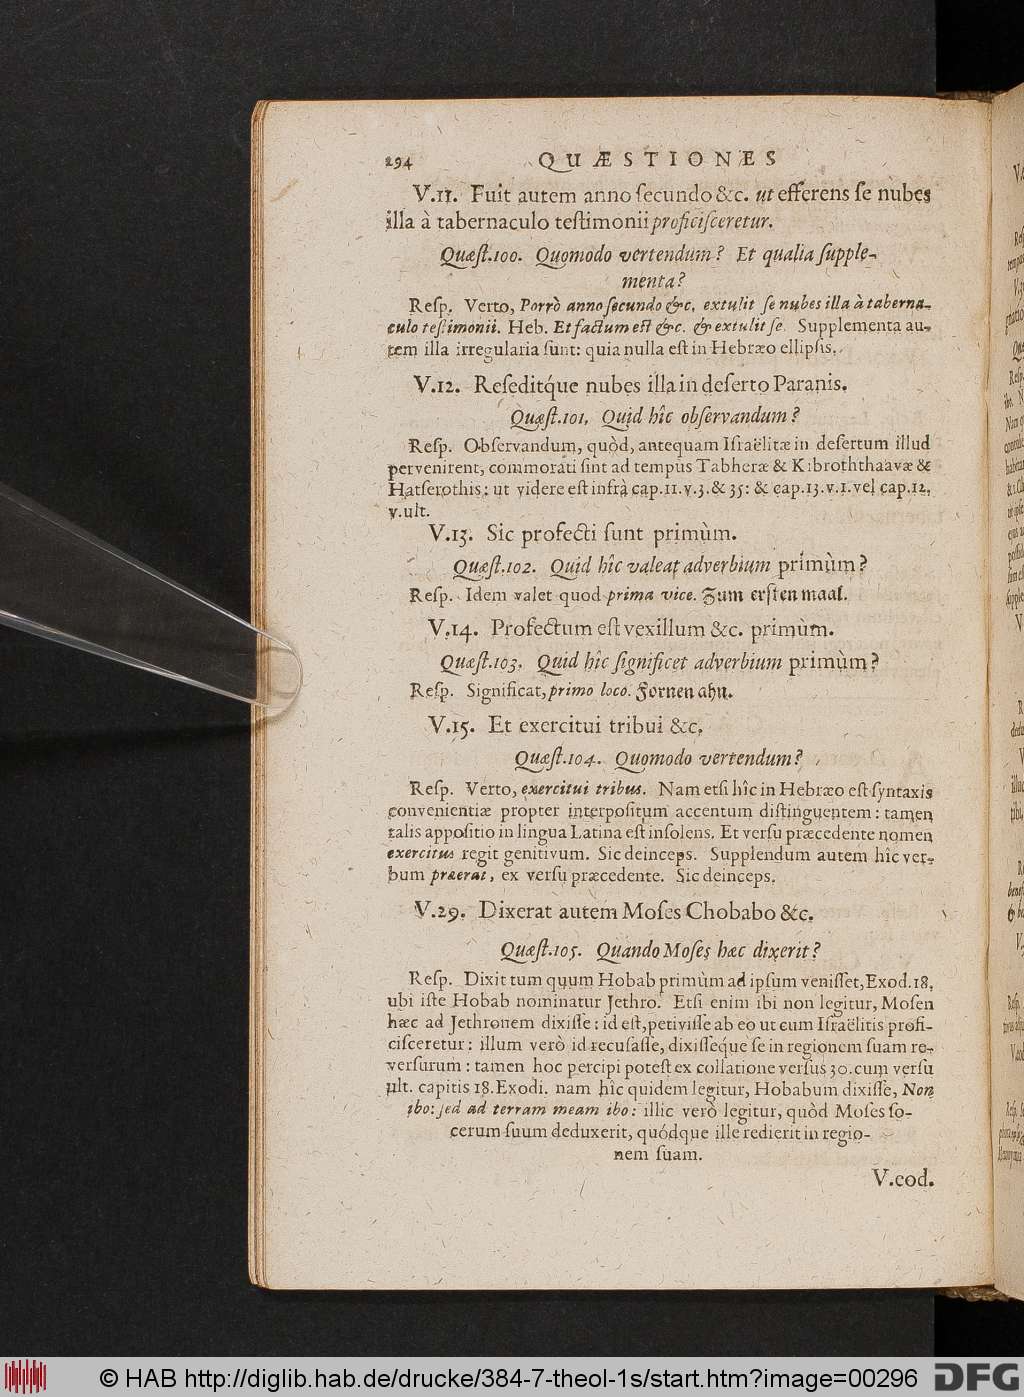 294 QUÆSTIONES
V.11. Fuit autem anno ſecundo &c. ut efferens ſe nubes
illa à tabernaculo teſtimonii proficiſceretur.
Quæſt.100. Quomodo vertendum? Et qualia ſupple-
menta?
Reſp. Verto, Porrò anno ſecundo &c. extulit ſe nubes illa à taberna-
culo teſtimonii. Heb. Et factum eſt &c. & extulit ſe. Supplementa au-
tem illa irregularia ſunt: quia nulla eſt in Hebræo ellipſis.
V.12. Reſeditq́ue nubes illa in deſerto Paranis.
Quæſt.101. Quid hîc obſervandum?
Reſp. Obſervandum, quòd, antequam Iſraëlitæ in deſertum illud
pervenirent, commorati ſint ad tempus Tabheræ & Kibroththaavæ &
Hatſerothis: ut videre eſt infrà cap.11.v.3.& 35: & cap.13.v.1.vel cap.12.
v.ult.
V.13. Sic profecti ſunt primùm.
Quæſt.102. Quid hîc valeat adverbium primùm?
Reſp. Idem valet quod prima vice. Zum erſten maal.
V.14. Profectum eſt vexillum &c. primùm.
Quæſt.103. Quid hîc ſignificet adverbium primùm?
Reſp. Significat, primo loco. Fornen ahn.
V.15. Et exercitui tribui &c.
Quæſt.104. Quomodo vertendum?
Reſp. Verto, exercitui tribus. Nam etſi hîc in Hebræo eſt ſyntaxis
convenientiæ propter interpoſitum accentum diſtinguentem: tamen
talis appoſitio in lingua Latina eſt inſolens. Et verſu præcedente nomen
exercitus regit genitivum. Sic deinceps. Supplendum autem hîc ver-
bum præerat, ex verſu præcedente. Sic deinceps.
V.29. Dixerat autem Moſes Chobabo &c.
Quæſt.105. Quando Moſes hæc dixerit?
Reſp. Dixit tum quum Hobab primùm ad ipſum veniſſet, Exod.18.
ubi iſte Hobab nominatur Jethro. Etſi enim ibi non legitur, Moſen
hæc ad Jethronem dixiſſe: id eſt, petiviſſe ab eo ut cum Iſraëlitis profi-
ciſceretur: illum verò id recuſaſſe, dixiſſeq́ue ſe in regionem ſuam re-
verſurum: tamen hoc percipi poteſt ex collatione verſus 30. cum verſu
ult. capitis 18. Exodi. nam hîc quidem legitur, Hobabum dixiſſe, Non
ibo: ſed ad terram meam ibo: illic verò legitur, quòd Moſes ſo-
cerum ſuum deduxerit, quódque ille redierit in regio-
nem ſuam.
V.eod.
© HAB http://diglib.hab.de/drucke/384-7-theol-1s/start.htm?image=00296 DFG